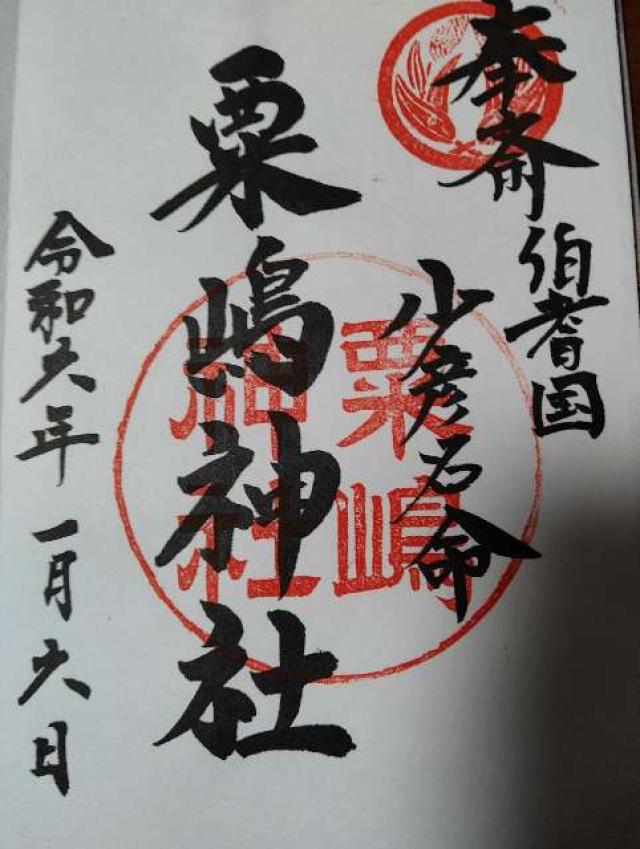 奉斎
伯耆国
少彦名命
粟嶋神社
粟嶋
神社
令和六年一月六日